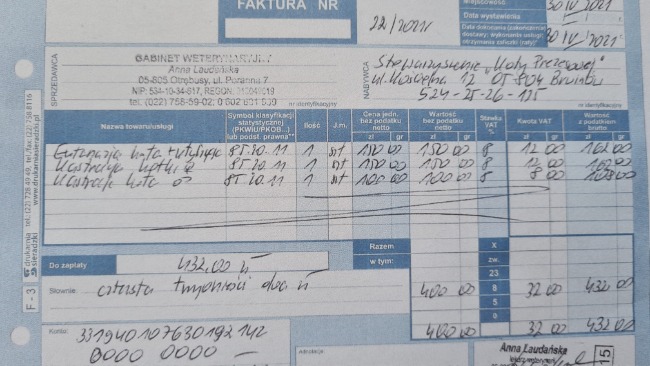 FAKTURA NR 22/2021
Miejscowość
Data wystawienia 30 IV 2021
Data dokonania (zakończenia) dostawy; wykonania usługi; otrzymania zaliczki (raty) 30 IV 2021
SPRZEDAWCA
GABINET WETERYNARYJNY
Anna Laudańska
05-805 Otrębusy, ul. Poranny 7
tel. (022) 758-59-02, 0 602
nr identyfikacyjny
NABYWCA
Stowarzyszenie "Koty Prezesowej"
ul. Kościelna 12 05-804 Bruinów
524-25-26-125
nr identyfikacyjny
Nazwa towaru/usługi | Symbol klasyfikacji statystycznej (PKWiU/PKOB...) lub podst. prawna | Ilość | J.m. | Cena jedn. bez podatku netto zł gr | Wartość bez podatku netto zł gr | Stawka VAT % | Kwota VAT zł gr | Wartość z podatkiem brutto zł gr
Eutanazja kota + utylizacja 85.20.11 1 szt 150 00 150 00 8 12 00 162 00
Kastracja kotki ♀ 85.20.11 1 szt 150 00 150 00 8 12 00 162 00
Kastracja kota ♂ 85.20.11 1 szt 100 00 100 00 8 8 00 108 00
Razem X
w tym: zw.
23
8 400 00 32 00 432 00
5
0
400 00 32 00 432 00
Do zapłaty 432,00 zł
Słownie: czterysta trzydzieści dwa zł
Konto: 33194010763019214 2
0000 0000 —
Adnotacje
Anna Laudańska
lekarz weterynarii
15
F - 3
drukarnia sieradzki
tel. (22) 728 49 49, tel./fax (22) 758 8116
www.drukarniasieradzki.pl